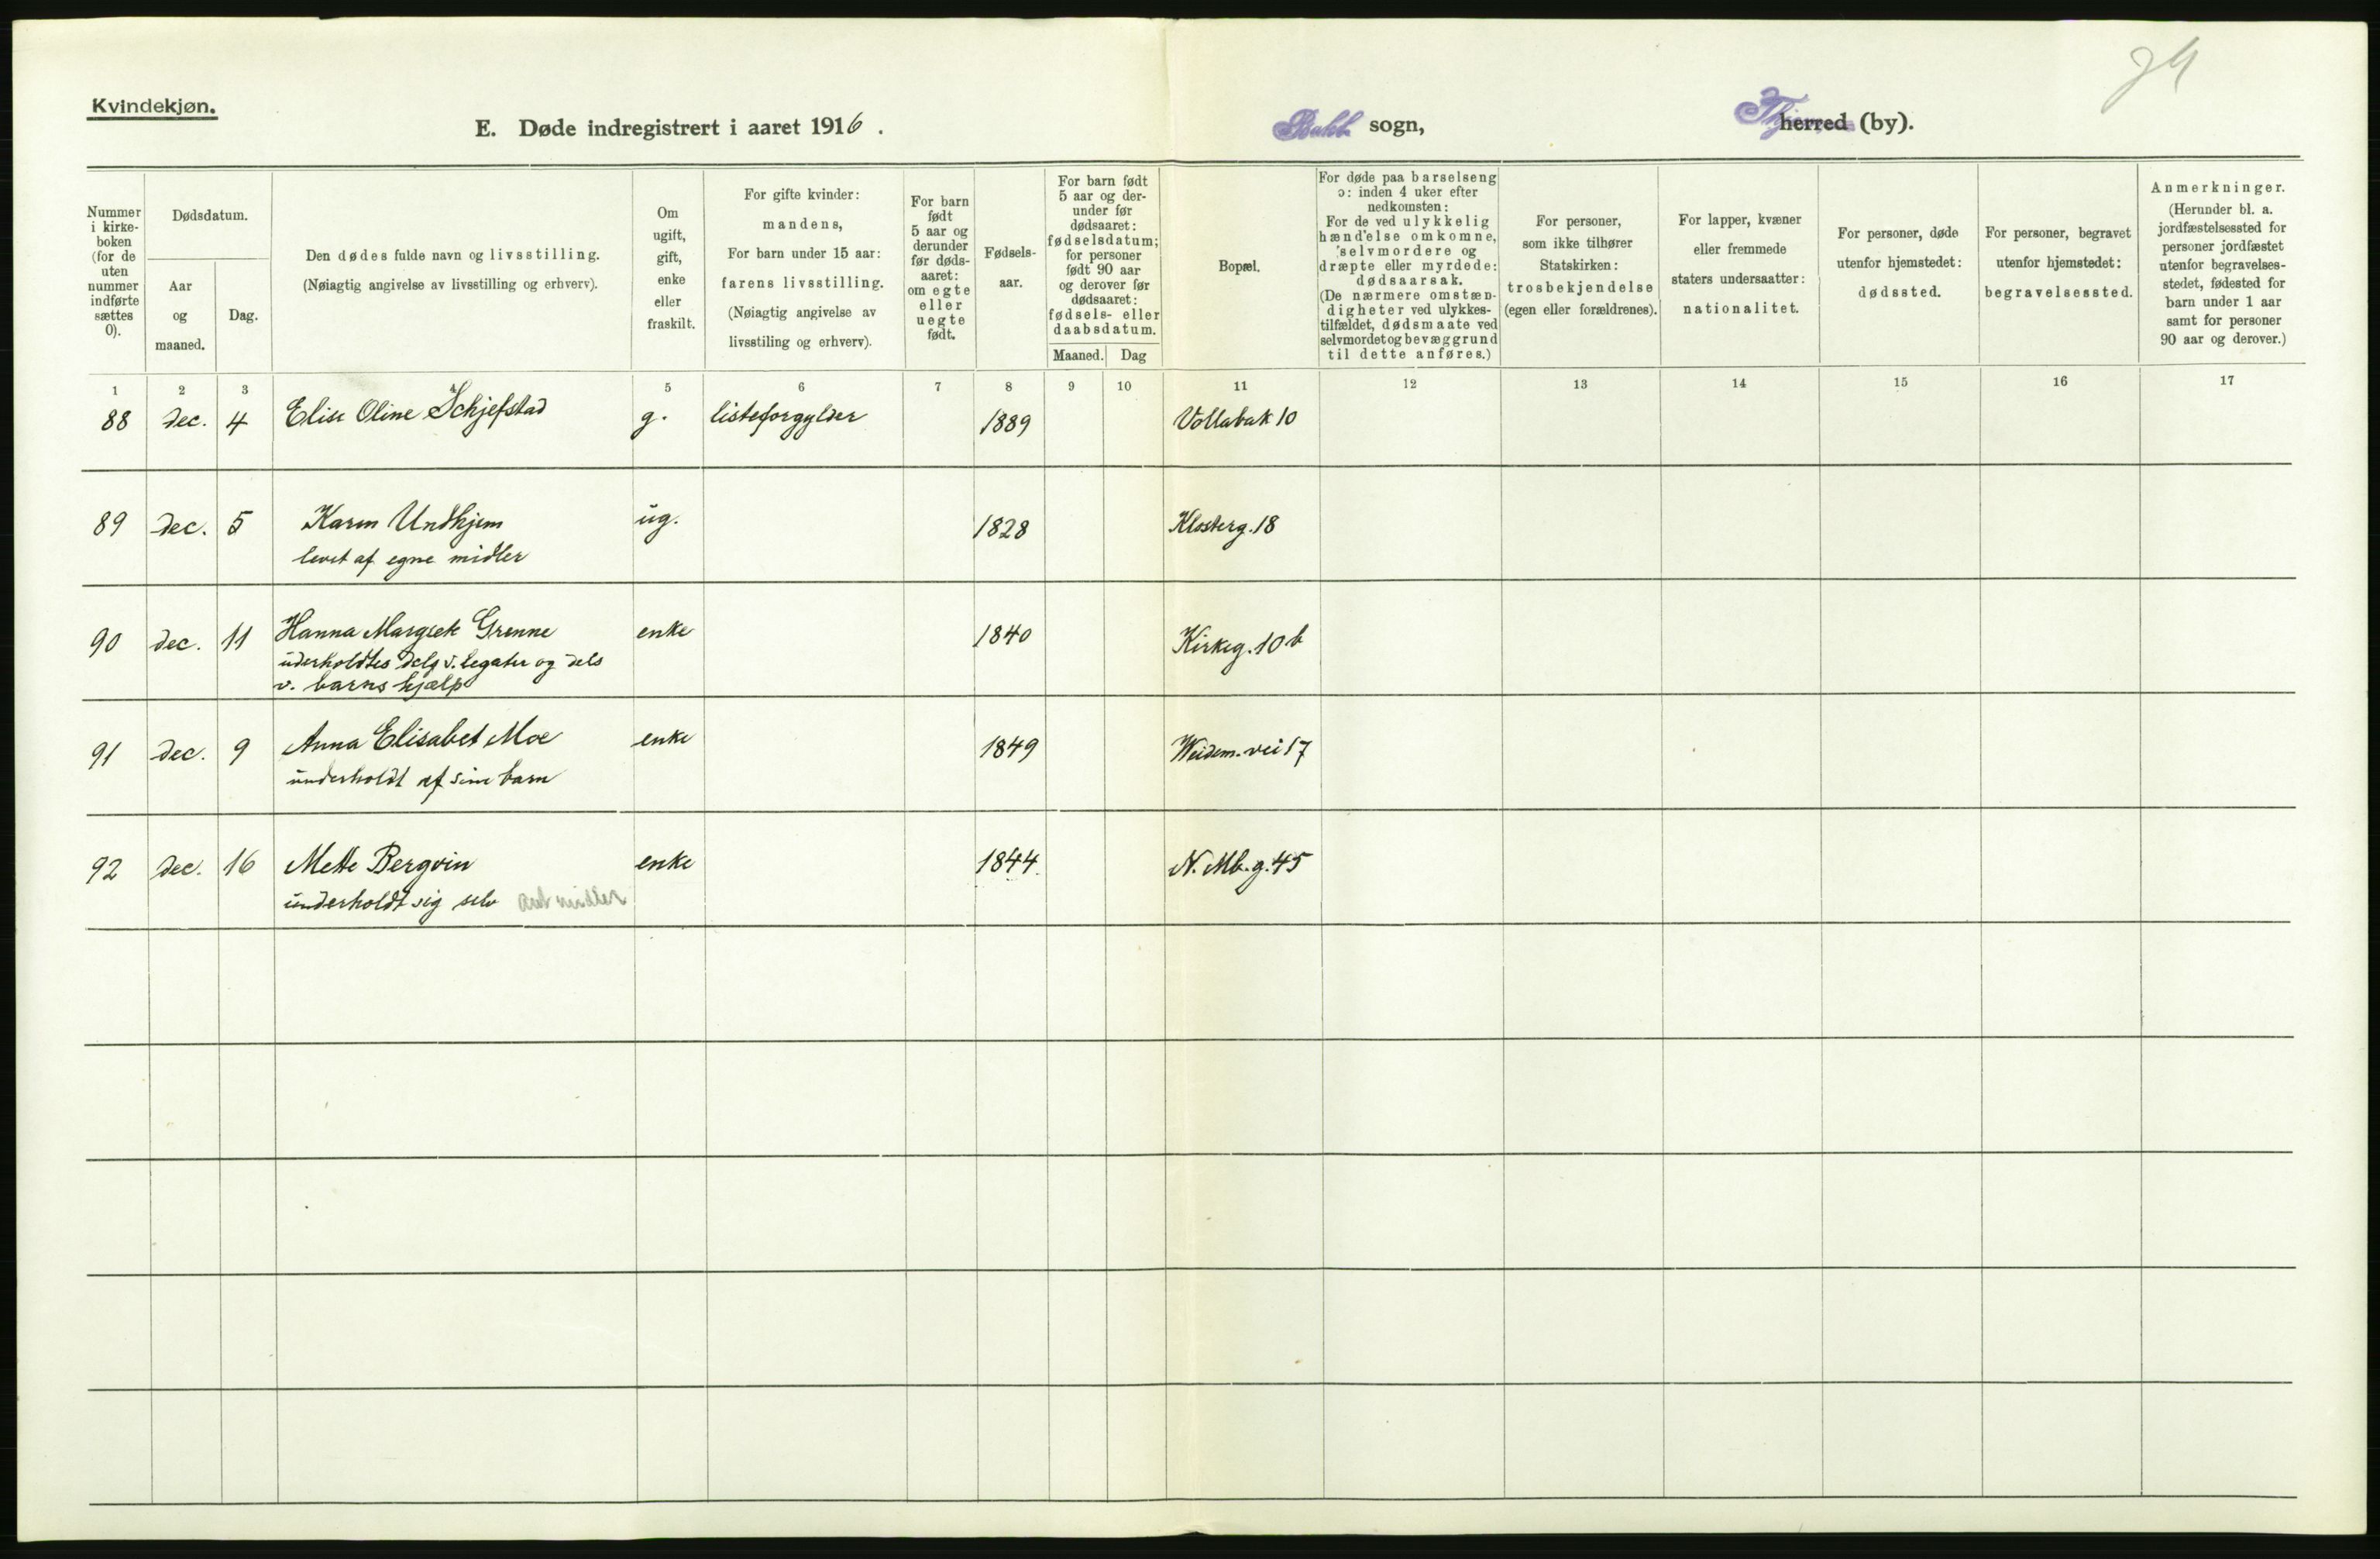 Kvindekjøn.
24
E. Døde indregistrert i aaret 1916.
Bakk sogn,
Thjem herred (by).
Nummer i kirke-boken (for de uten nummer indførte sættes 0).
Dødsdatum.
Aar og maaned.
Dag.
Den dødes fulde navn og livsstilling.
(Nøiagtig angivelse av livsstilling og erhverv).
Om ugift, gift, enke eller fraskilt.
For gifte kvinder:
mandens,
For barn under 15 aar:
farens livsstilling.
(Nøiagtig angivelse av
livsstiling og erhverv).
For barn født 5 aar og derunder før døds-aaret: om egte eller uegte født.
Fødsels-aar.
For barn født
5 aar og der-
under før
dødsaaret:
fødselsdatum;
for personer
født 90 aar
og derover før
dødsaaret:
fødsels- eller
daabsdatum.
Maaned. Dag
Bopæl.
For døde paa barselseng
ɔ: inden 4 uker efter
nedkomsten:
For de ved ulykkelig
hændelse omkomne,
selvmordere og
dræpte eller myrdede:
dødsaarsak.
(De nærmere omstæn-
digheter ved ulykkes-
tilfældet, dødsmaate ved
selvmordet og bevæggrund
til dette anføres.)
For personer,
som ikke tilhører
Statskirken:
trosbekjendelse
(egen eller forældrenes).
For lapper, kvæner
eller fremmede
staters undersaatter:
nationalitet.
For personer, døde
utenfor hjemstedet:
dødssted.
For personer, begravet
utenfor hjemstedet:
begravelsessted.
Anmerkninger.
(Herunder bl. a.
jordfæstelsessted for
personer jordfæstet
utenfor begravelses-
stedet, fødested for
barn under 1 aar
samt for personer
90 aar og derover.)
1 2 3 4 5 6 7 8 9 10 11 12 13 14 15 16 17
88 dec. 4 Elise Oline Schjefstad g. listeforgylder 1889 Vollabak 10
89 dec. 5 Karen Undhjem ug. 1828 Klosterg. 18
levet af egne midler
90 dec. 11 Hanna Margrete Grenne enke 1840 Kirkeg. 10 b
underholdtes dels v. legater og dels
v. barns hjælp
91 dec. 9 Anna Elisabet Moe enke 1849 Weidem. vei 17
underholdt af sine barn
92 dec. 16 Mette Bergvin enke 1844 N. Mb. g. 45
underholdt sig selv midler